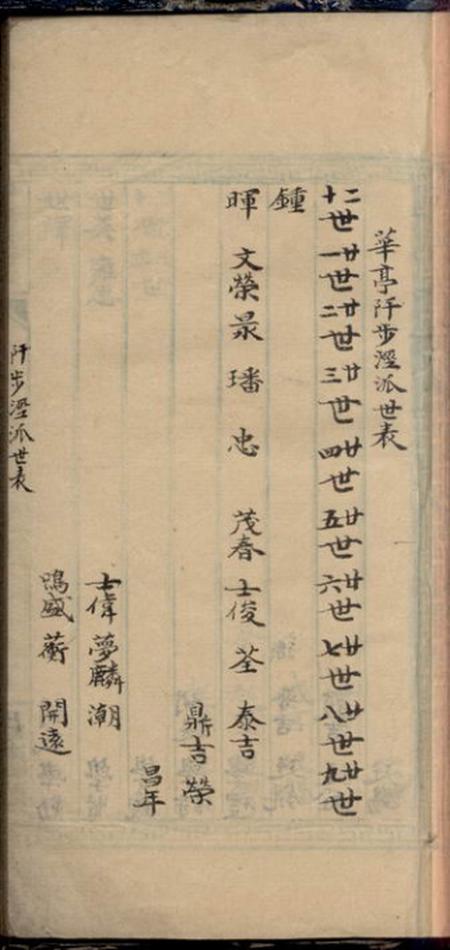 華亭阡步涇派世表
二十世 廿一世 廿二世 廿三世 廿四世 廿五世 廿六世 廿七世 廿八世 廿九世
鍾
暉 文榮 㝡 璠 忠 茂春 士俊 荃 泰吉
鼎吉 榮
昌年
士偉 夢麟 潮
鳴盛 蘅 開遠
阡步涇派世表